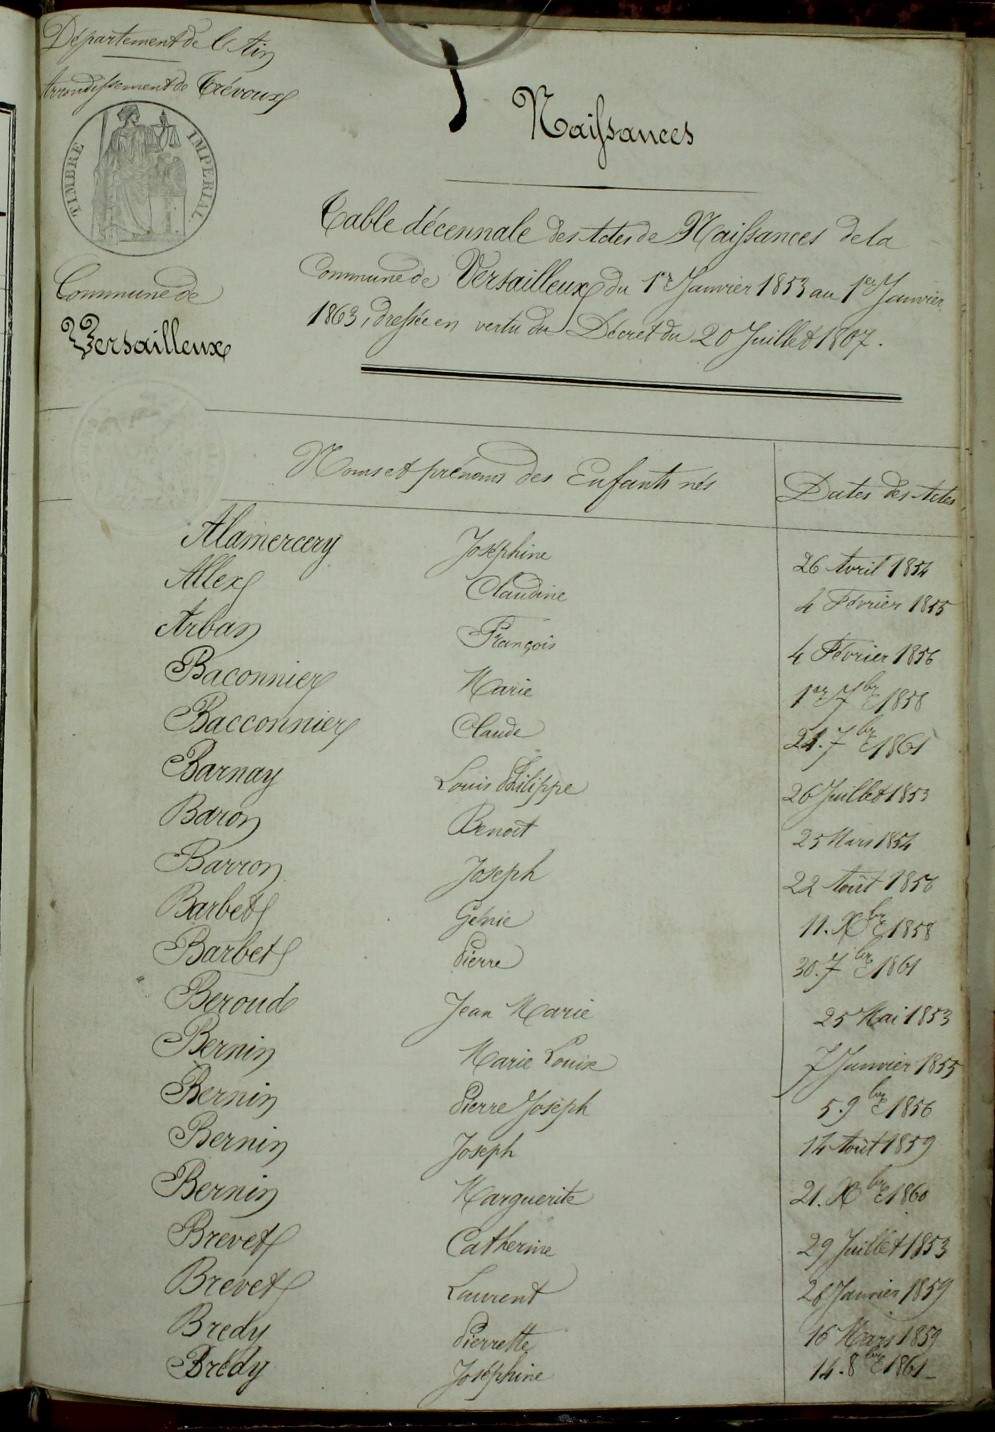 Département de l'Ain
Arrondissement de Trévoux
TIMBRE IMPERIAL
Commune de
Versailleux
Naissances
Table décennale des Actes de Naissances de la
Commune de Versailleux du 1er Janvier 1853 au 1er Janvier
1863, dressée en vertu du Décret du 20 Juillet 1807.
Noms et prénoms des Enfants nés Dates des Actes
Alamercery Joséphine 26 Avril 1854
Allex Claudine 4 Février 1855
Arban François 4 Février 1856
Baconnier Marie 1er 7bre 1858
Bacconnier Claude 21. 7bre 1861
Barnay Louis Philippe 26 Juillet 1853
Baron Benoit 25 Mars 1854
Barron Joseph 22 Août 1856
Barbet Génie 11. Xbre 1858
Barbet Pierre 30. 7bre 1861
Beroud Jean Marie 25 Mai 1853
Bernin Marie Louise 7 Janvier 1855
Bernin Pierre Joseph 5. 9bre 1856
Bernin Joseph 14 Août 1859
Bernin Marguerite 21. Xbre 1860
Brevet Catherine 29 Juillet 1853
Brevet Laurent 26 Janvier 1859
Bredy Pierrette 16 Mars 1859
Brédy Joséphine 14. 8bre 1861